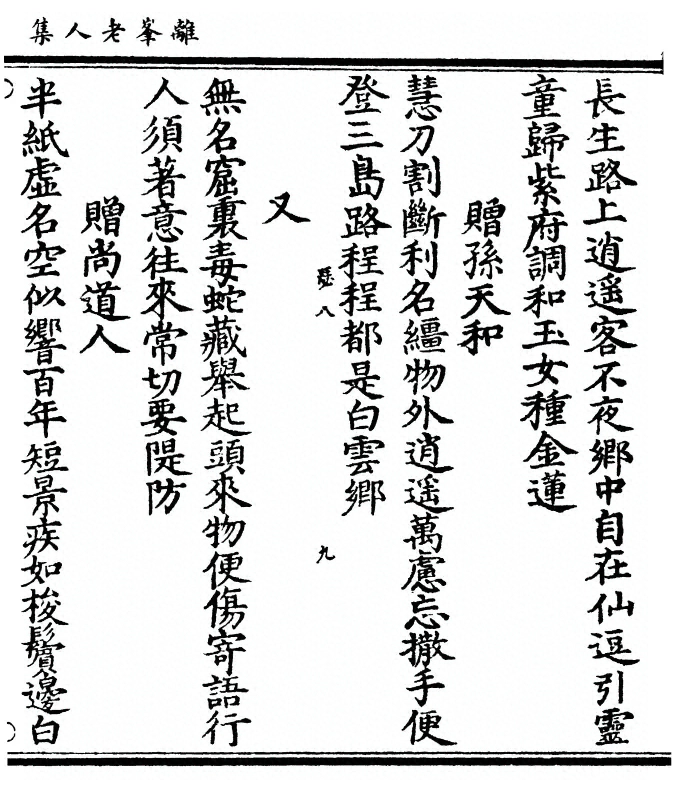 離峯老人集
長生路上逍遥客不夜鄉中自在仙逗引靈
童歸紫府調和玉女種金蓮
贈孫天和
慧刀割斷利名繮物外逍遥萬慮忘撒手便
登三島路程程都是白雲鄉
瑟八
九
又
無名窟裏毒蛇藏舉起頭來物便傷寄語行
人須著意往來常切要隄防
贈尚道人
半紙虛名空似響百年短景疾如梭鬢邊白